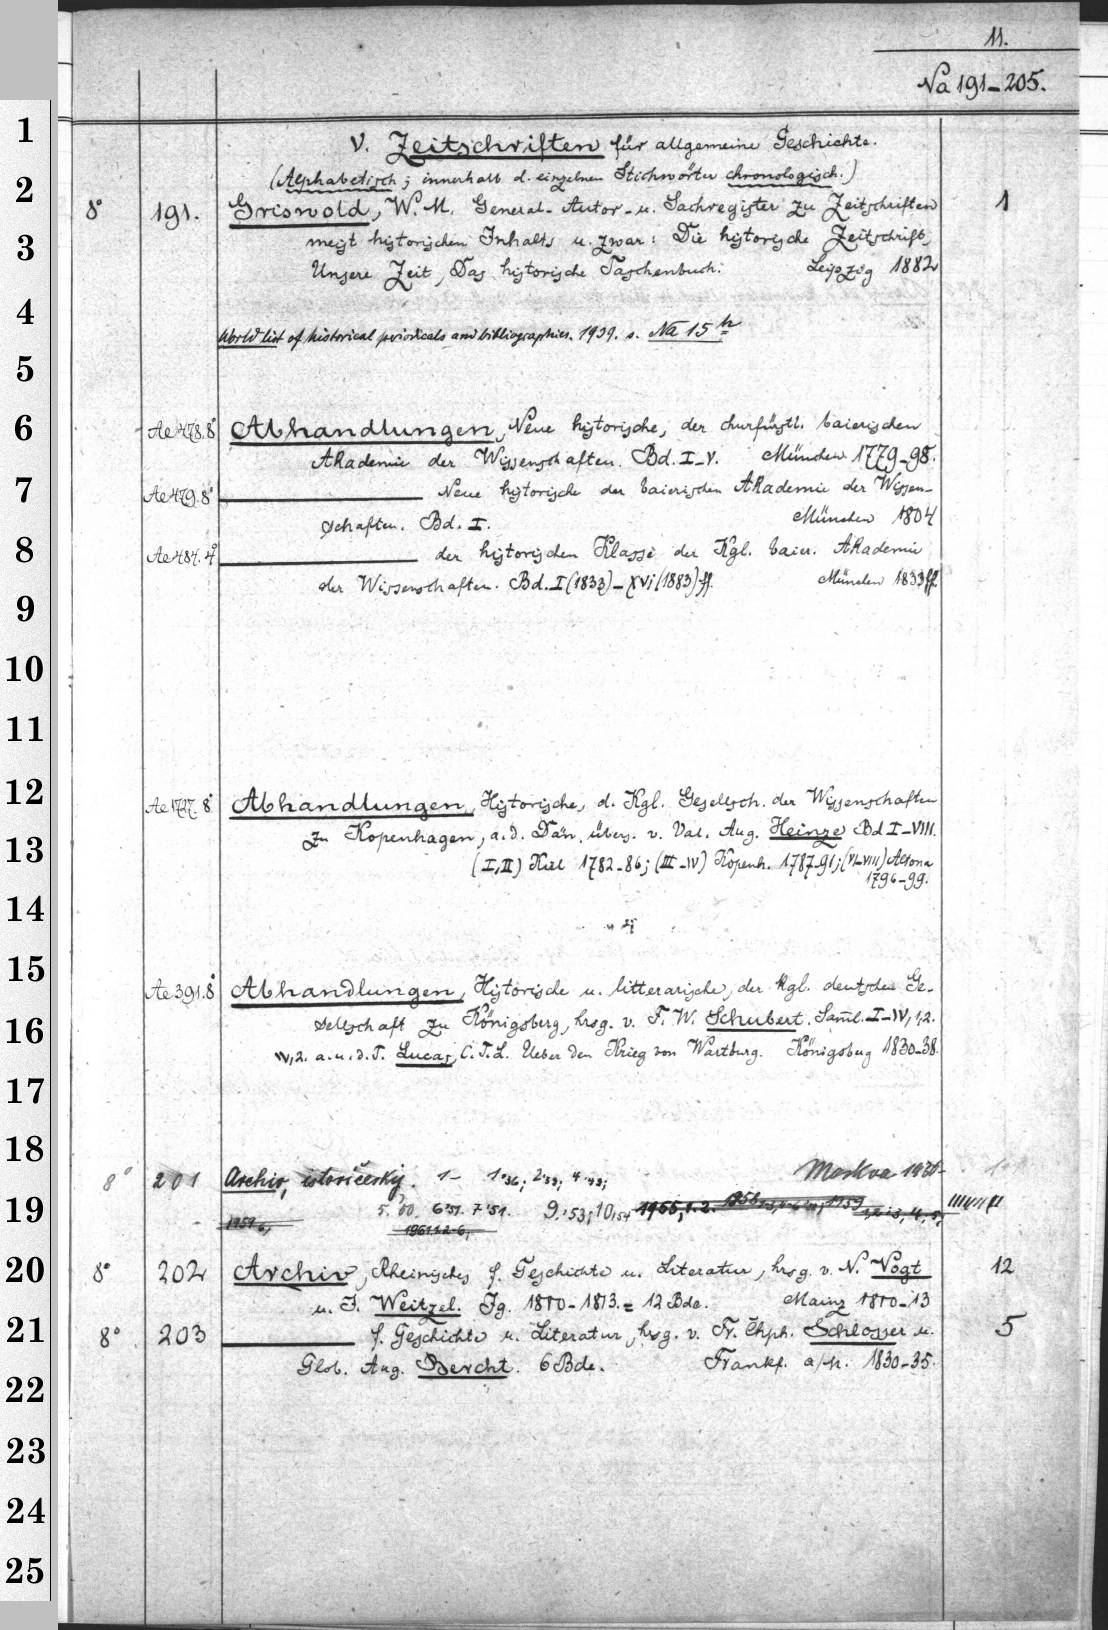 11.
Na 191-205.
V. Zeitschriften für allgemeine Geschichte.
(Alphabetisch; innerhalb d. einzelnen Stichwörter chronologisch.)
8° 191. Griswold, W. M. General-Autor- u. Sachregister zu Zeitschriften 1
meist historischen Inhalts u. zwar: Die historische Zeitschrift,
Unsere Zeit, Das historische Taschenbuch. Leipzig 1882
World list of historical periodicals and bibliographies. 1939. s. Na 15 h
Ae 478. 8° Abhandlungen, Neue historische, der churfürstl. baierischen
Akademie der Wissenschaften. Bd. I-V. München 1779-98.
Ae 479. 8° Neue historische der baierischen Akademie der Wissen-
schaften. Bd. I. München 1804
Ae 484. 4° der historischen Klasse der Kgl. baier. Akademie
der Wissenschaften. Bd. I (1833) - XVI (1883) ff. München 1833 ff
Ae 1727. 8° Abhandlungen, Historische, d. Kgl. Gesellsch. der Wissenschaften
zu Kopenhagen, a. d. Dän. übers. v. Val. Aug. Heinze Bd I-VIII.
(I, II) Kiel 1782-86; (III-IV) Kopenh. 1787-91; (VI-VIII) Altona
1796-99.
Ae 391. 8° Abhandlungen, Historische u. litterarische, der Kgl. deutschen Ge-
sellschaft zu Königsberg, hrsg. v. F. W. Schubert. Saml. I-IV, 1,2.
IV, 2. a. u. d. T. Lucas, C. T. L. Ueber den Krieg von Wartburg. Königsberg 1830-38.
8° 201 Archiv, istoričeskij. 1- 1'36; 2'39; 4'49; Moskva 1936-
5.'50. 6'51. 7'51. 9.'53; 10,'54 1955,1.2.
1961 1.2-6,
8° 202 Archiv, Rheinisches f. Geschichte u. Literatur, hrsg. v. N. Vogt 12
u. J. Weitzel. Jg. 1810-1813. = 12 Bde. Mainz 1810-13
8° 203 f. Geschichte u. Literatur, hrsg. v. Fr. Chph. Schlosser u. 5
Glob. Aug. Bercht. 6 Bde. Frankf. a/M. 1830-35.
1
2
3
4
5
6
7
8
9
10
11
12
13
14
15
16
17
18
19
20
21
22
23
24
25